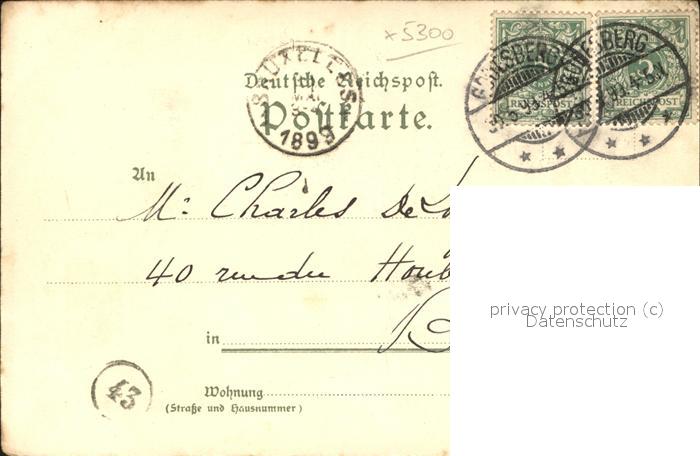 x5300
Deutsche Reichspost.
Postkarte.
BRUXELLES
1899
GODESBERG
REICHSPOST
GODESBERG
3
REICHSPOST
An
Mr Charles De
40 rue du Houb
in
B
privacy protection (c)
Datenschutz
43
Wohnung
(Straße und Hausnummer)